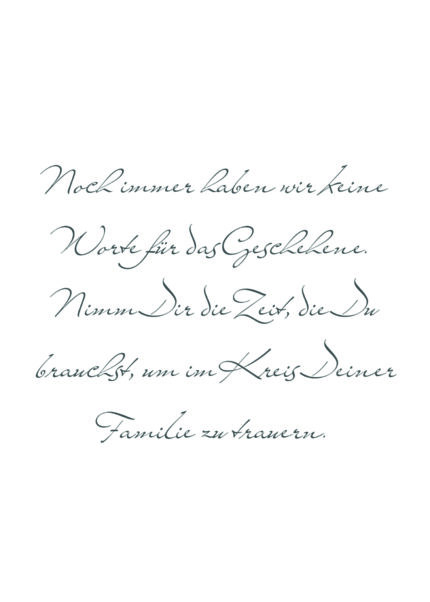 Noch immer haben wir keine
Worte für das Geschehene.
Nimm Dir die Zeit, die Du
brauchst, um im Kreis Deiner
Familie zu trauern.